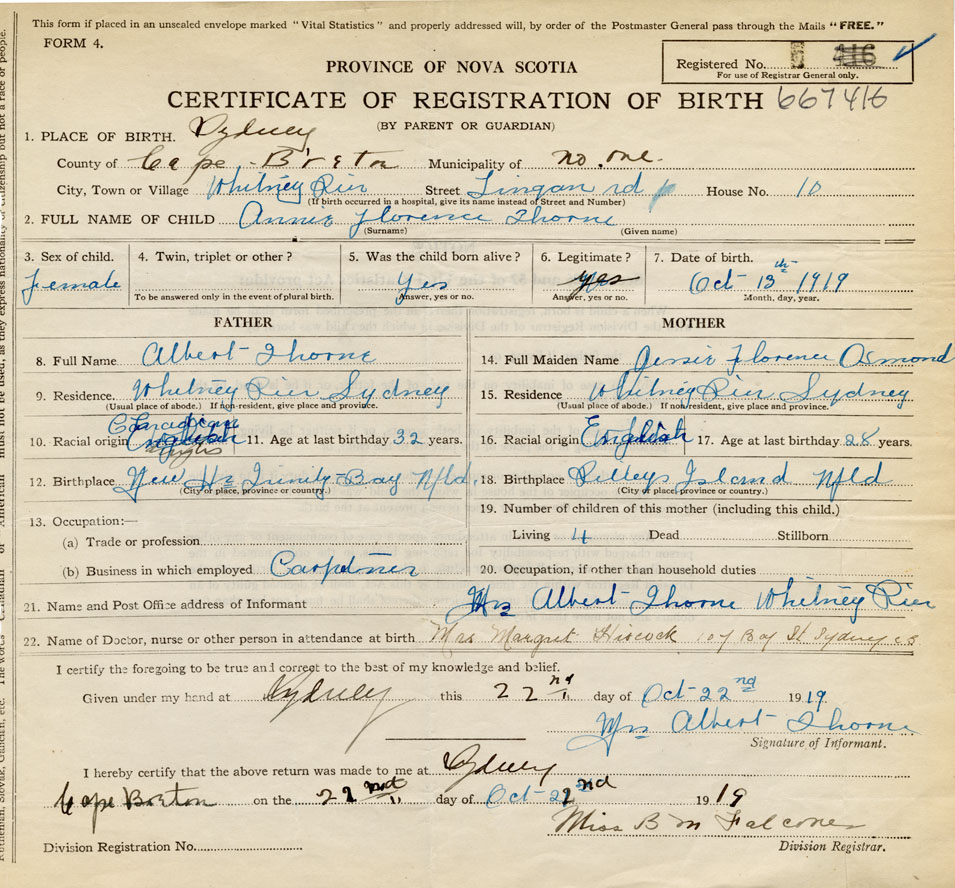 This form if placed in an unsealed envelope marked "Vital Statistics" and properly addressed will, by order of the Postmaster General pass through the Mails "FREE."
FORM 4.
Registered No. 416
For use of Registrar General only.
PROVINCE OF NOVA SCOTIA
CERTIFICATE OF REGISTRATION OF BIRTH 667416
(BY PARENT OR GUARDIAN)
1. PLACE OF BIRTH. Sydney
County of Cape Breton Municipality of no. one.
City, Town or Village Whitney Pier Street Lingan rd House No. 10
(If birth occurred in a hospital, give its name instead of Street and Number)
2. FULL NAME OF CHILD Annie Florence Thorne
(Surname) (Given name)
3. Sex of child. 4. Twin, triplet or other? 5. Was the child born alive? 6. Legitimate? 7. Date of birth.
Female Yes yes Oct 13th 1919
To be answered only in the event of plural birth. Answer, yes or no. Answer, yes or no. Month, day, year.
FATHER
8. Full Name Albert Thorne
9. Residence Whitney Pier Sydney
(Usual place of abode.) If non-resident, give place and province.
Canadian
10. Racial origin English 11. Age at last birthday 32 years.
12. Birthplace New Hr Trinity Bay Nfld,
(City or place, province or country.)
13. Occupation:—
(a) Trade or profession
(b) Business in which employed Carptner
MOTHER
14. Full Maiden Name Jessie Florence Osmond
15. Residence Whitney Pier Sydney
(Usual place of abode.) If non-resident, give place and province.
16. Racial origin English 17. Age at last birthday 28 years.
18. Birthplace Pilleys Island Nfld
(City or place, province or country.)
19. Number of children of this mother (including this child.)
Living 4 Dead Stillborn
20. Occupation, if other than household duties
21. Name and Post Office address of Informant Mrs Albert Thorne Whitney Pier
22. Name of Doctor, nurse or other person in attendance at birth Mrs Margret Hiscock 107 Bay St Sydney C.B
I certify the foregoing to be true and correct to the best of my knowledge and belief.
Given under my hand at Sydney this 22nd day of Oct 22nd 1919
Mrs Albert Thorne
Signature of Informant.
I hereby certify that the above return was made to me at Sydney
Cape Breton on the 22nd day of Oct 22nd 1919
Miss B M Falconer
Division Registrar.
Division Registration No.